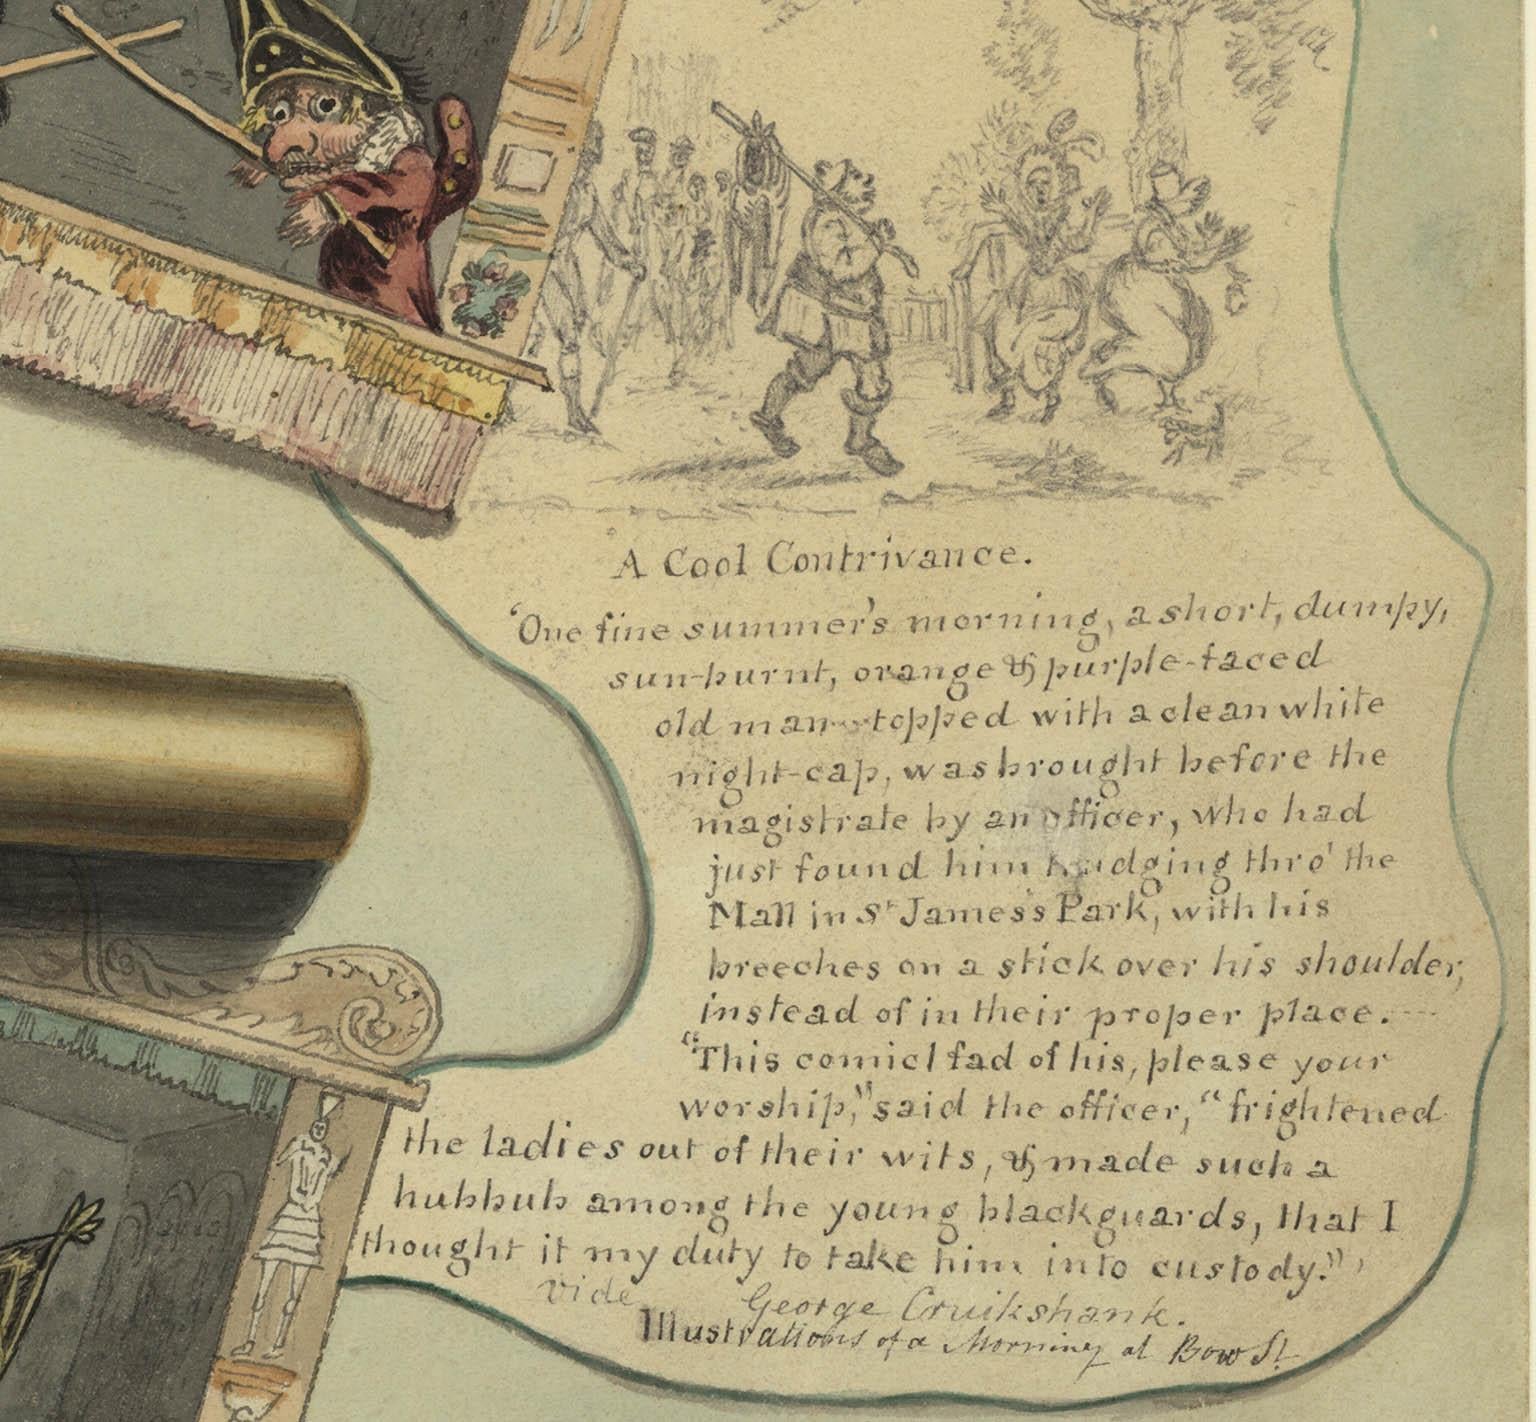 A Cool Contrivance.
‘One fine summer's morning, a short, dumpy,
sun-burnt, orange & purple-faced
old man--topped with a clean white
night-cap, was brought before the
magistrate by an officer, who had
just found him trudging thro' the
Mall in St James's Park, with his
breeches on a stick over his shoulder,
instead of in their proper place.---
“This comicl fad of his, please your
worship," said the officer, “frightened
the ladies out of their wits, & made such a
hubbub among the young blackguards, that I
thought it my duty to take him into custody."’
Vide
George Cruikshank.
Illustrations of a Morning at Bow St